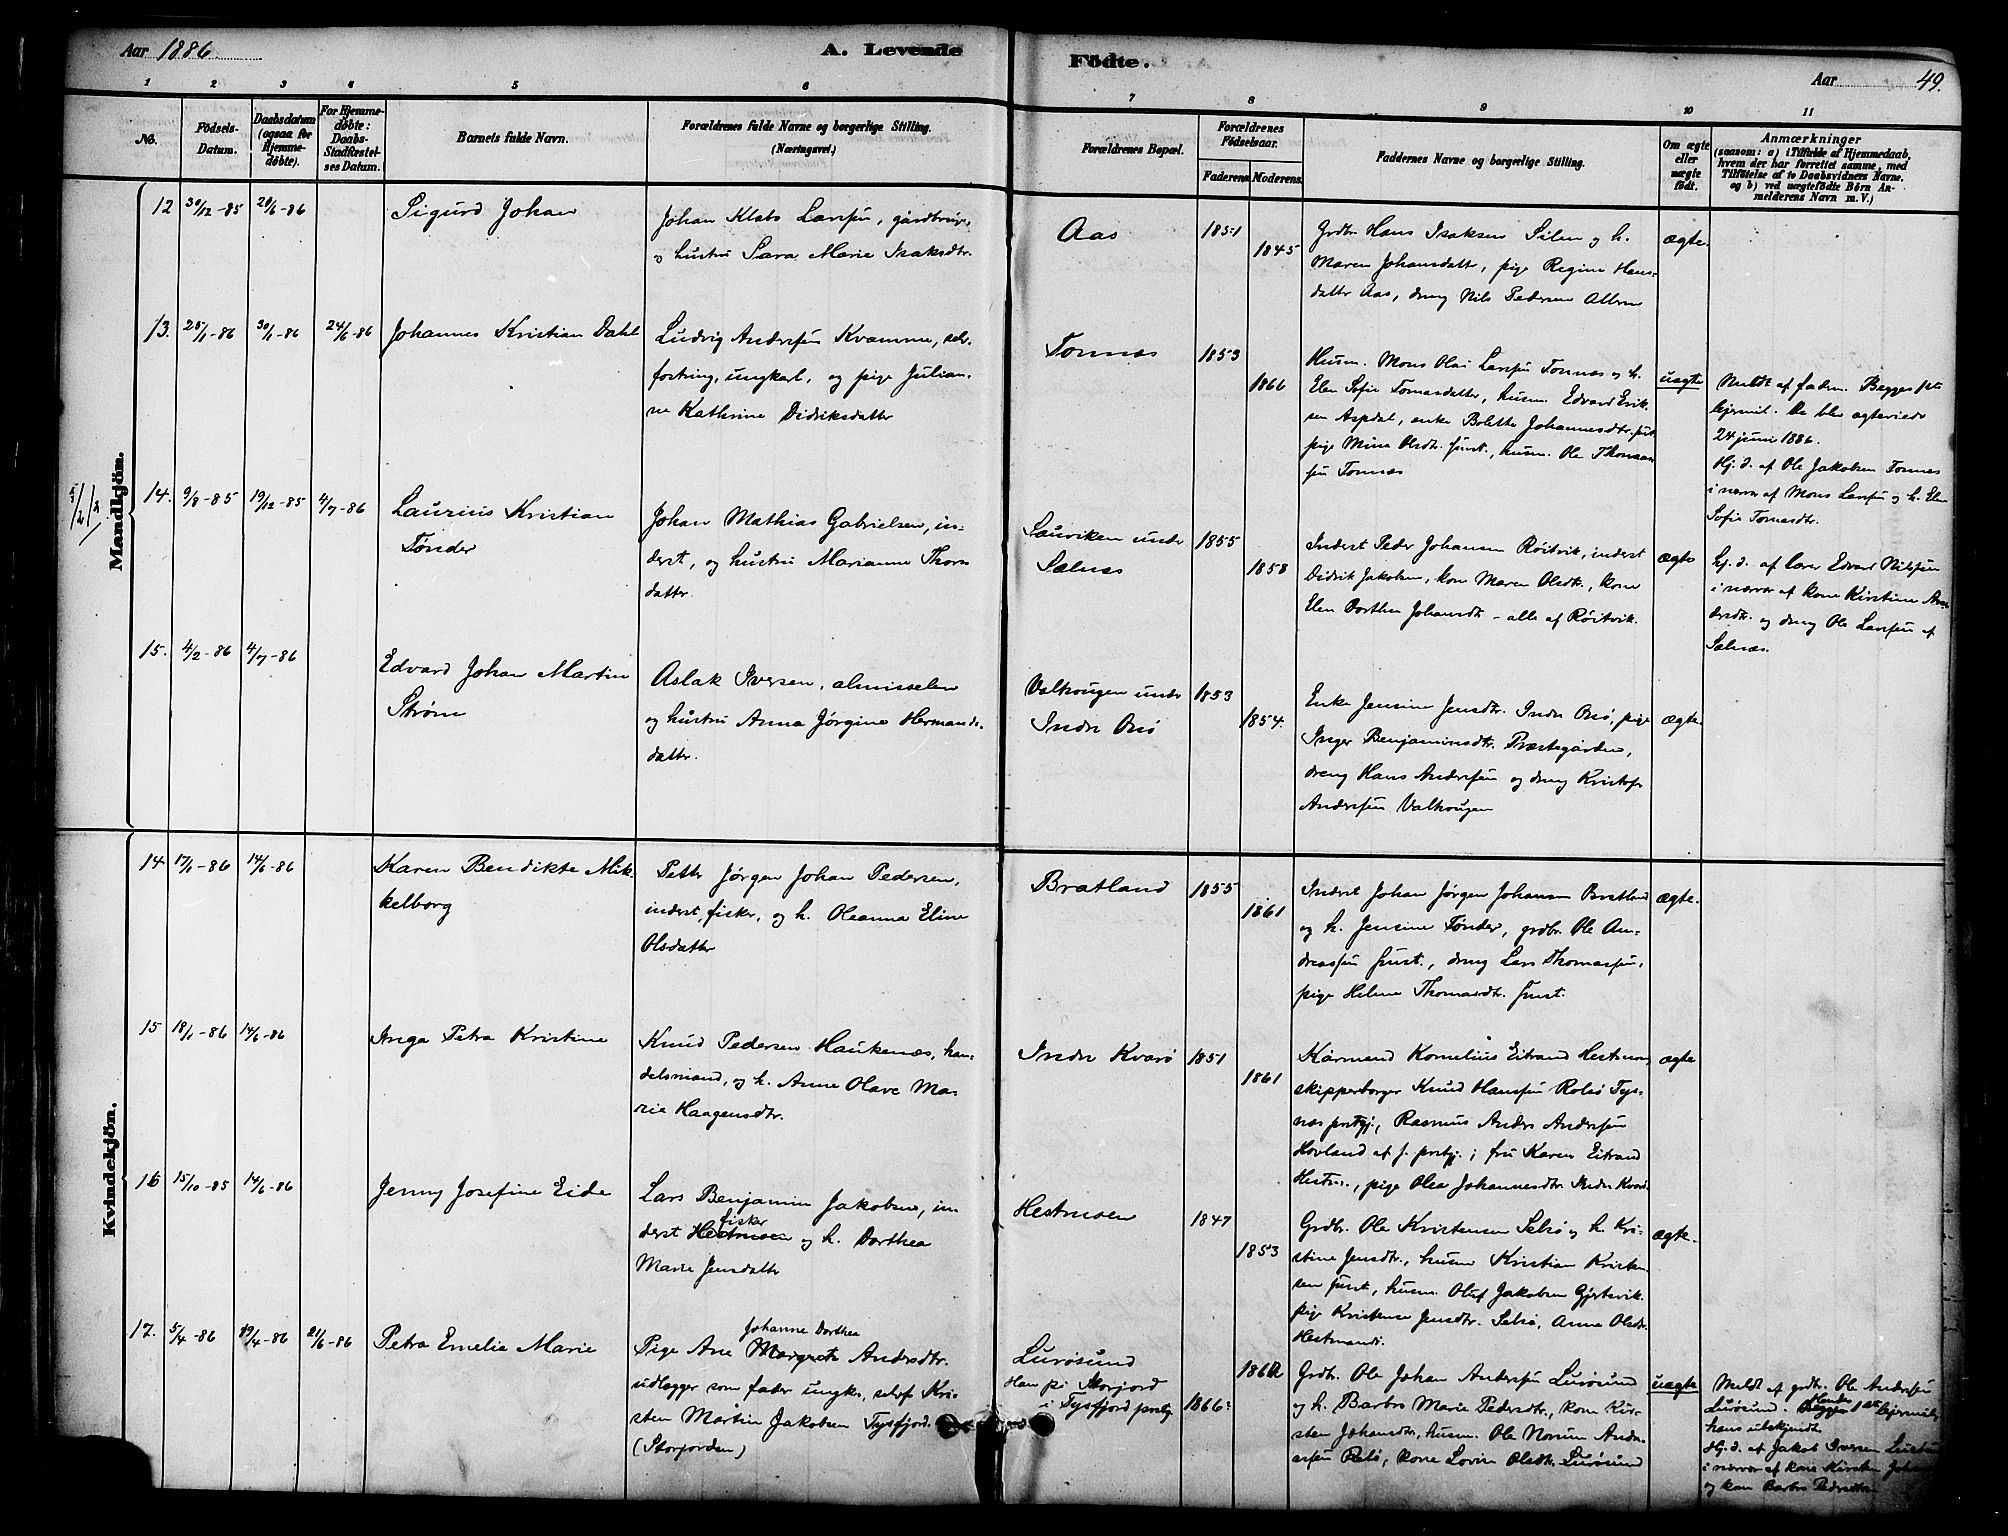 Aar 1886
A. Levende
Fødte.
Aar
49
1 2 3 4 5 6 7 8 9 10 11
No.
Födsels-
Datum.
Daabsdatum
(ogsaa for
Hjemme-
døbte).
For Hjemme-
døbte:
Daabs-
Stadfæstel-
ses Datum.
Barnets fulde Navn.
Forældrenes fulde Navne og borgerlige Stilling.
(Næringsvei.)
Forældrenes Bopæl.
Forældrenes
Fødselsaar.
Faderens. Moderens.
Faddernes Navne og borgerlige Stilling.
Om ægte
eller
uægte
født.
Anmærkninger
(saasom: a) i Tilfælde af Hjemmedaab,
hvem der har forrettet samme, med
Tilføielse af to Daabsvidners Navne.
og b) ved uægtefødte Børn An-
melderens Navn m. V.)
Mandkjön.
12 30/12-85 20/6-86
Sigurd Johan
Johan Klabo Larsen, gårdbruger,
og hustru Sara Marie Isaksdtr.
Aas
1851
1845
Grdbr. Hans Isaksen Silen og h.
Maren Johansdatter, pige Regine Hans-
datter Aas, dreng Nils Pedersen
ægte.
13. 25/1-86 30/1-86 24/6-86
Johannes Kristian Dahl
Ludvig Andersen Kvamme, selv-
fostring, ungkarl, og pige Julian-
ne Kathrine Didriksdatter
Tonnæs
1853
1866
Husm. Mons Olai Larsen Tonnæs og h.
Elen Sofie Tomasdatter, husm. Edvard Erik-
sen Aspdal, enke Bolette Johannesdtr.
pige Mina Olsdtr. sumst., husm. Ole Thomas-
sen Tonnæs
uægte
Meldt af faderen. Begges 1ste
leiermål. De blev ægteviede
24 juni 1886.
Hj. d. af Ole Jakobsen Tonnæs
i nærvær af Mons Larsen og h. Elen
Sofie Tomasdtr.
14. 9/8-85 19/12-85 4/7-86
Laurius Kristian
Tønder
Johan Mathias Gabrielsen, in-
derst, og hustru Marianne Thors
datter.
Sauviken under
Selnæs
1855
1858
Inderst Peder Johansen Røitvik, inderst
Didrik Jakobsen, kone Maren Olsdtr., kone
Elen Dorthea Johansdtr. - alle af Røitvik.
ægte
hj. d. af lærer Edvard Nilssen
i nærvær af kone Kirstine An-
dersdtr. og dreng Ole Larsen af
Selnæs.
15. 4/2-86 4/7-86
Edvard Johan Martin
Strøm
Aslak Iversen, almisselem
og hustru Anna Jørgine Hermans-
datter.
Valhougen under
Indre Onø
1853
1854.
Enke Jensine Jensdtr. Indre Onø, pige
Inger Benjaminsdtr. Præstegården,
dreng Hans Andersen og dreng Kristofer
Andersen Valhougen
ægte.
Kvindekjön.
14 17/1-86 14/6-86
Karen Bendikte Mik-
kelborg
Petter Jørgen Johan Pedersen,
inderst, fisker, og h. Oleanna Eline
Olsdatter
Bratland
1855
1861
Inderst Johan Jørgen Johansen Bratland
og h. Jensine Tønder, grdbr. Ole An-
dreassen sumst., dreng Lars Thomassen,
pige Helene Thomasdtr. sumst.
ægte.
15 18/1-86 14/6-86
Inga Petra Kristine
Knud Pedersen Haukenæs, han-
delsmand, og h. Anne Olave Ma-
rie Haagensdtr.
Indre Kvarø
1851
1861
Kjøbmand Kornelius Eitrand Hestmon,
skipperborger Knud Hanssen Rolsø Tys-
nes prstgj., Rasmus Anders Andersen
Hovland af s. prstgj., fru Karen Eitrand
Hestm., pige Olea Johannesdtr. Indre Kvarø
ægte
16 15/10-85 14/6-86
Jenny Josefine Eide
Lars Benjamin Jakobsen, in-
derst fisker og h. Dorthea
Marie Jensdatter
Hestmoen
1847
1853
Grdbr. Ole Kristensen Selsø og h. Kri-
stine Jensdtr., husm Kristian Kristen-
sen sumst, husm. Oluf Jakobsen Gjertsvik
pige Kristense Jensdtr. Selsø, Anne Olsdtr.
Hestmandø.
ægte.
17. 5/4-86 19/4-86 21/6-86
Petra Emelie Marie
Johanne Dorthea
Pige Ane Margrete Andersdtr.
udlægger som fader ungk., selvf Kri-
sten Martin Jakobsen Tysfjord.
(Storjorden)
Lurøsund
Han på Storjord
i Tysfjord prstgj
1866:
Grdbr. Ole Johan Andersen Lurøsund
og h. Barbro Marie Pedersdtr., kone Kir-
sten Johansdtr., husm. Ole Norum Andre-
assen Relø, kone Lovise Olsdtr. Lurøsund
uægte
Meldt af grdbr. Ole Andersen
Lurøsund. Hendes 1ste leiermål,
hans ubekjendt.
Hj. d. af Jakob Iversen
i nærvær af kone Kirsten
og kone Barbro Pedersdtr.